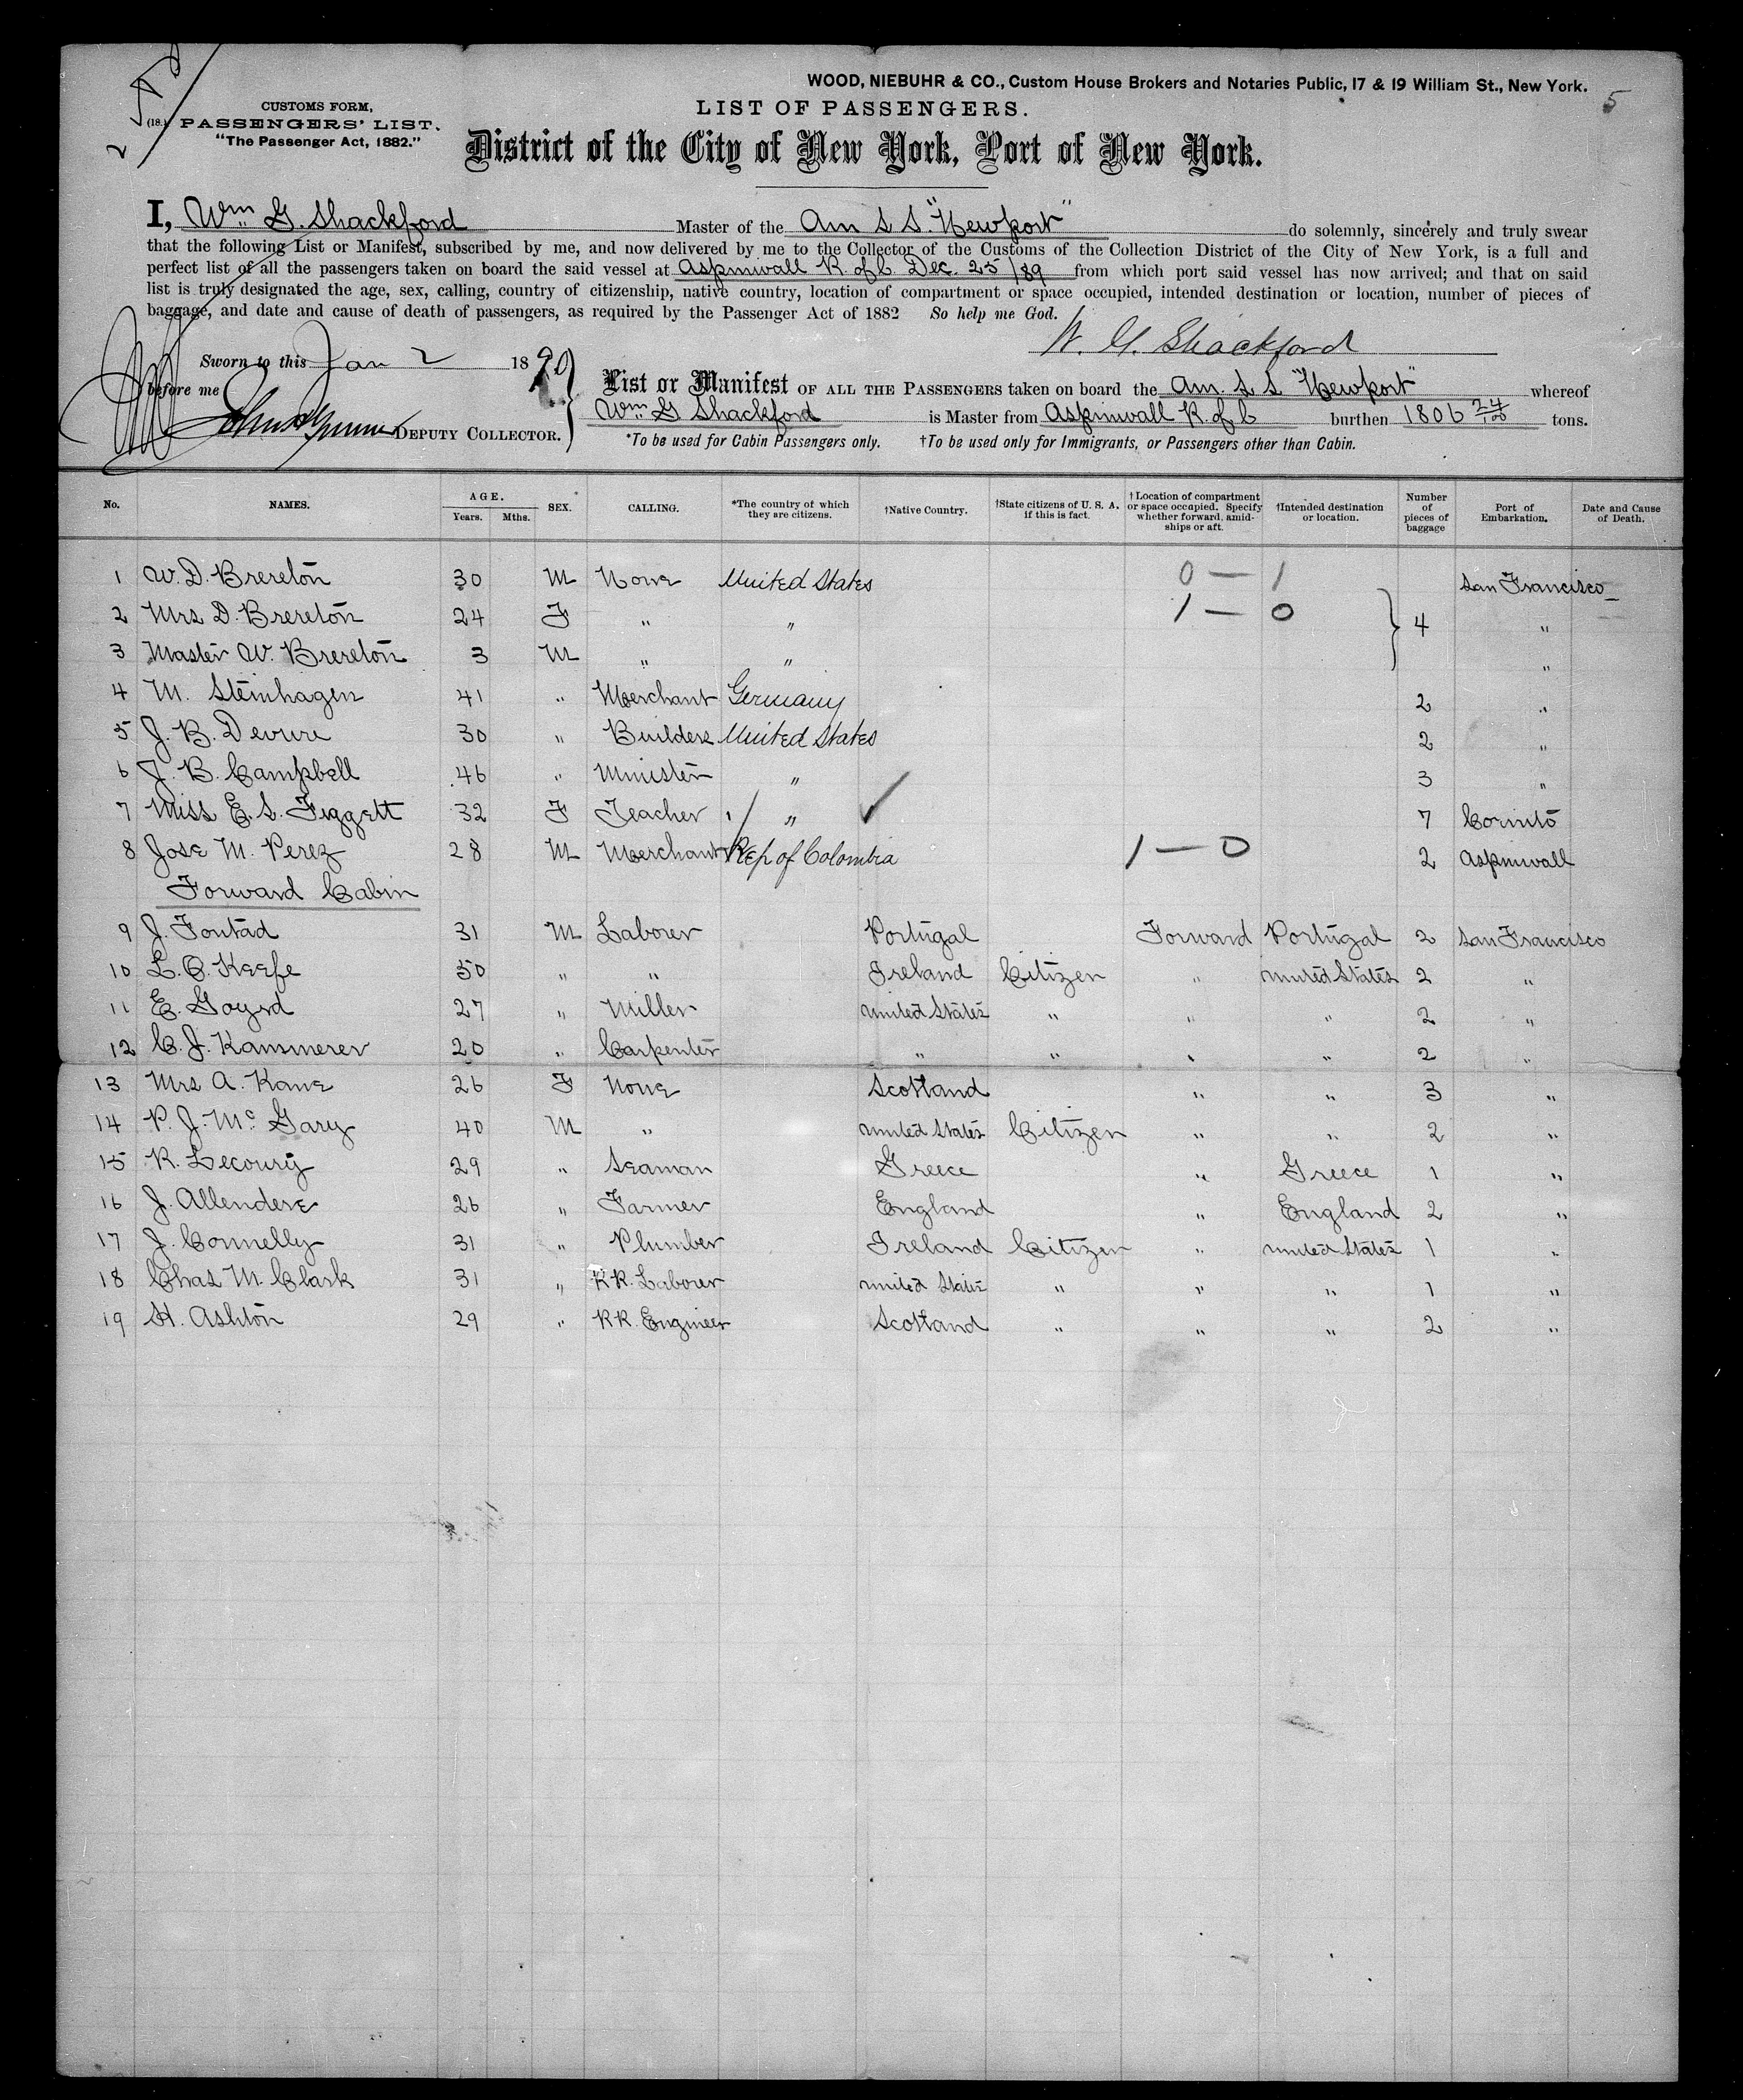 WOOD, NIEBUHR & CO., Custom House Brokers and Notaries Public, 17 & 19 William St., New York.
5
CUSTOMS FORM,
(18.) PASSENGERS' LIST.
"The Passenger Act, 1882."
LIST OF PASSENGERS.
District of the City of New York, Port of New York.
I, Wm G. Shackford Master of the Am S S. "Newport" do solemnly, sincerely and truly swear
that the following List or Manifest, subscribed by me, and now delivered by me to the Collector of the Customs of the Collection District of the City of New York, is a full and
perfect list of all the passengers taken on board the said vessel at Aspinwall R. of C. Dec. 25/89 from which port said vessel has now arrived; and that on said
list is truly designated the age, sex, calling, country of citizenship, native country, location of compartment or space occupied, intended destination or location, number of pieces of
baggage, and date and cause of death of passengers, as required by the Passenger Act of 1882 So help me God.
W. G. Shackford
Sworn to this Jan 2 1890
before me
DEPUTY COLLECTOR.
List or Manifest OF ALL THE PASSENGERS taken on board the Am. S S "Newport" whereof
Wm G Shackford is Master from Aspinwall R. of C burthen 1806 tons.
*To be used for Cabin Passengers only. †To be used only for Immigrants, or Passengers other than Cabin.
No. NAMES. AGE. Years. Mths. SEX. CALLING. *The country of which they are citizens. †Native Country. †State citizens of U. S. A. if this is fact. †Location of compartment or space occupied. Specify whether forward, amidships or aft. †Intended destination or location. Number of pieces of baggage Port of Embarkation. Date and Cause of Death.
1 W. D. Brereton 30 M None United States 0 — 1 San Francisco
2 Mrs D. Brereton 24 F " " 1 — 0 4 "
3 Master W. Brereton 3 M " " "
4 M. Steinhagen 41 " Merchant Germany 2 "
5 J. B. Devure 30 " Builder United States 2 "
6 J. B. Campbell 46 " Minister " 3 "
7 Miss E. S. Figgett 32 F Teacher " 7 Corinto
8 Jose M. Perez 28 M Merchant Rep of Colombia 1 — 0 2 Aspinwall
Forward Cabin
9 J. Fontad 31 M Laborer Portugal Forward Portugal 2 San Francisco
10 L. O. Keefe 50 " " Ireland Citizen " United States 2 "
11 E. Goyrd 27 " Miller United States " " " 2 "
12 C. J. Kammerer 20 " Carpenter " " " " 2 "
13 Mrs A. Kane 26 F None Scotland " " 3 "
14 P. J. Mc Gary 40 M " United States Citizen " " 2 "
15 R. Lecoury 29 " Seaman Greece " Greece 1 "
16 J. Allendere 26 " Farmer England " England 2 "
17 J. Connelly 31 " Plumber Ireland Citizen " United States 1 "
18 Chas M. Clark 31 " RR. Laborer United State " " " 1 "
19 H. Ashton 29 " RR. Engineer Scotland " " " 2 "